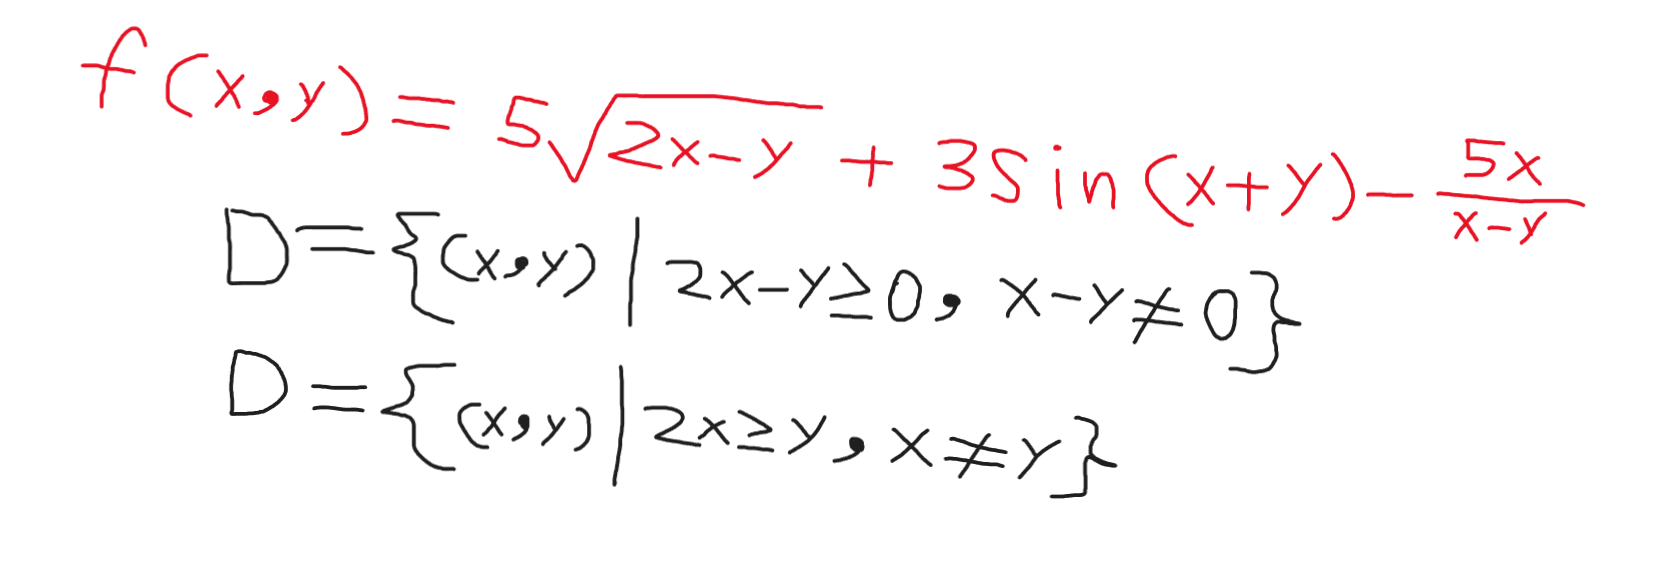 f(x,y) = 5√(2x-y) + 3Sin(x+y) - 5x/(x-y)
D = {(x,y) | 2x-y≥0, x-y≠0}
D = {(x,y) | 2x≥y, x≠y}